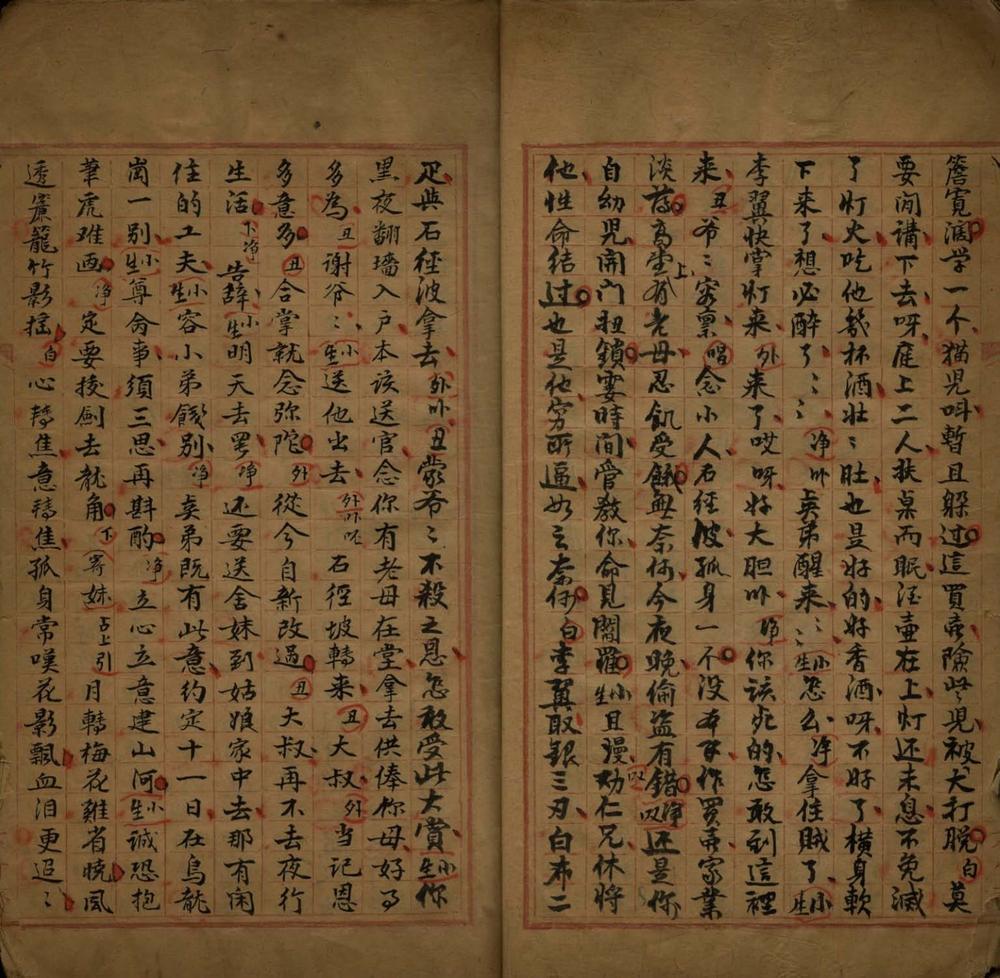 簷寬濶学一个猫児呌暫且躱过這買賣險些児被犬打脱白莫
要閙講下去呀庭上二人扶桌而眠酒壷在上灯还未息不免滅
了灯火吃他幾杯酒壮〻肚也是好的好香酒呀不好了橫身軟
下来了想必醉了〻〻净卟賢弟醒来〻〻小生怎么净拿住賊了小生
李翼快掌灯来外来了哎呀好大胆卟净你該死的怎敢到這裡
来丑爷〻容禀唱念小人石径波孤身一不没有本作買賣家業
淡薄高堂上有老母忍飢受餓無奈何今夜晚偷盗有錯净叹还是你
自幼児開門扭鎖霎時間管教你命見閻羅小生且漫叹劝仁兄休将
他性命结过也是他穷所逼如之奈何白李翼取銀三刃白布二
疋與石径波拿去外卟丑蒙爷〻不殺之恩怎敢受此大賞小生你
黑夜翻墻入户本该送官念你有老母在堂拿去供俸你母好
多為丑谢爷〻小生送他出去外卟 石徑坡轉来丑大叔外当记恩
多意多丑合掌就念弥陀外從今自新改過丑大叔再不去夜行
生活下净告辞小生明天去罢净还要送舍妹到姑娘家中去那有闲
住的工夫小生容小弟餞别净賢弟既有此意约定十一日在烏龍
崗一别小生尊命事須三思再斟酌净立心立意建山河小生诚恐抱
筆虎难画净定要挍劍去龍角下寄妹占上引月轉梅花難省晚風
透簾籠竹影摇白心轉焦意轉焦孤身常嘆花影飄血泪更迢〻